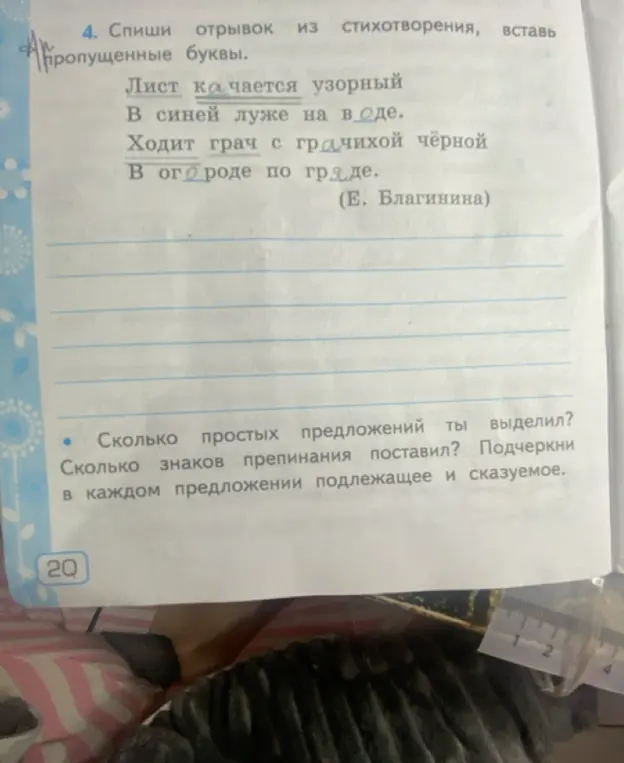 4. Спиши отрывок из стихотворения, вставь
пропущенные буквы.
Лист качается узорный
В синей луже на воде.
Ходит грач с грачихой чёрной
В огороде по гряде.
(Е. Благинина)
• Сколько простых предложений ты выделил?
Сколько знаков препинания поставил? Подчеркни
в каждом предложении подлежащее и сказуемое.
20
1 2 4